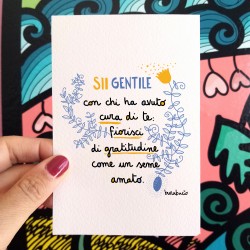 SII GENTILE
con chi ha avuto
cura di te:
fiorisci
di gratitudine
come un seme
amato.